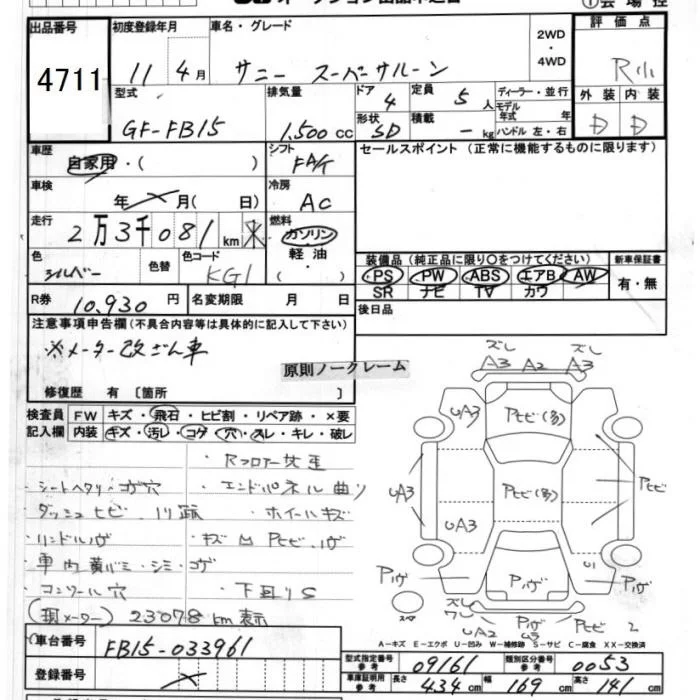 出品番号
4711
初度登録年月
11 4 月
車名・グレード
サニー スーパーサルーン
2WD
・
4WD
評価点
R小
外装 内装
D D
型式
GF-FB15
排気量
1.500 cc
ドア
4
形状
SD
定員
5 人
積載
- kg
ディーラー・並行
モデル
年式 年
ハンドル 左・右
車歴
自家用・( )
シフト
FA/T
セールスポイント (正常に機能するものに限ります)
車検
年 月( 日)
冷房
AC
走行
2万3千081 km
燃料
ガソリン
軽油
( )
色
シルバー
色替
色コード
KG1
装備品 (純正品に限り○をつけてください)
PS PW ABS エアB AW
SR ナビ TV カワ
新車保証書
有・無
R券
10,930 円
名変期限 月 日
後日品
注意事項申告欄 (不具合内容等は具体的に記入して下さい)
※メーター改ざん車
原則ノークレーム
修復歴 有 〔箇所 〕
検査員
記入欄
FW キズ・飛石・ヒビ割・リペア跡・×要
内装 キズ・汚レ・コゲ・穴・スレ・キレ・破レ
・シートヘタリ・コゲ穴
・エンドパネル曲り
・ホイールキズ
・コンソール穴
(現メーター) 23078 km 表示
ズレ ズレ
A3 A2 A3
UA3
Pヒビ(多)
Pヒビ(多)
Pヒビ
UA3
UA3
U1
スペア
UA2
Pヒビ
A-キズ E-エクボ U-凹み W-補修跡 S-サビ C-腐食 XX-交換済
車台番号
FB15-033961
登録番号
型式指定番号
参考
09161
類別区分番号
参考
0053
車庫証明用
参考
長さ 434 cm
幅 169 cm
高さ 141 cm